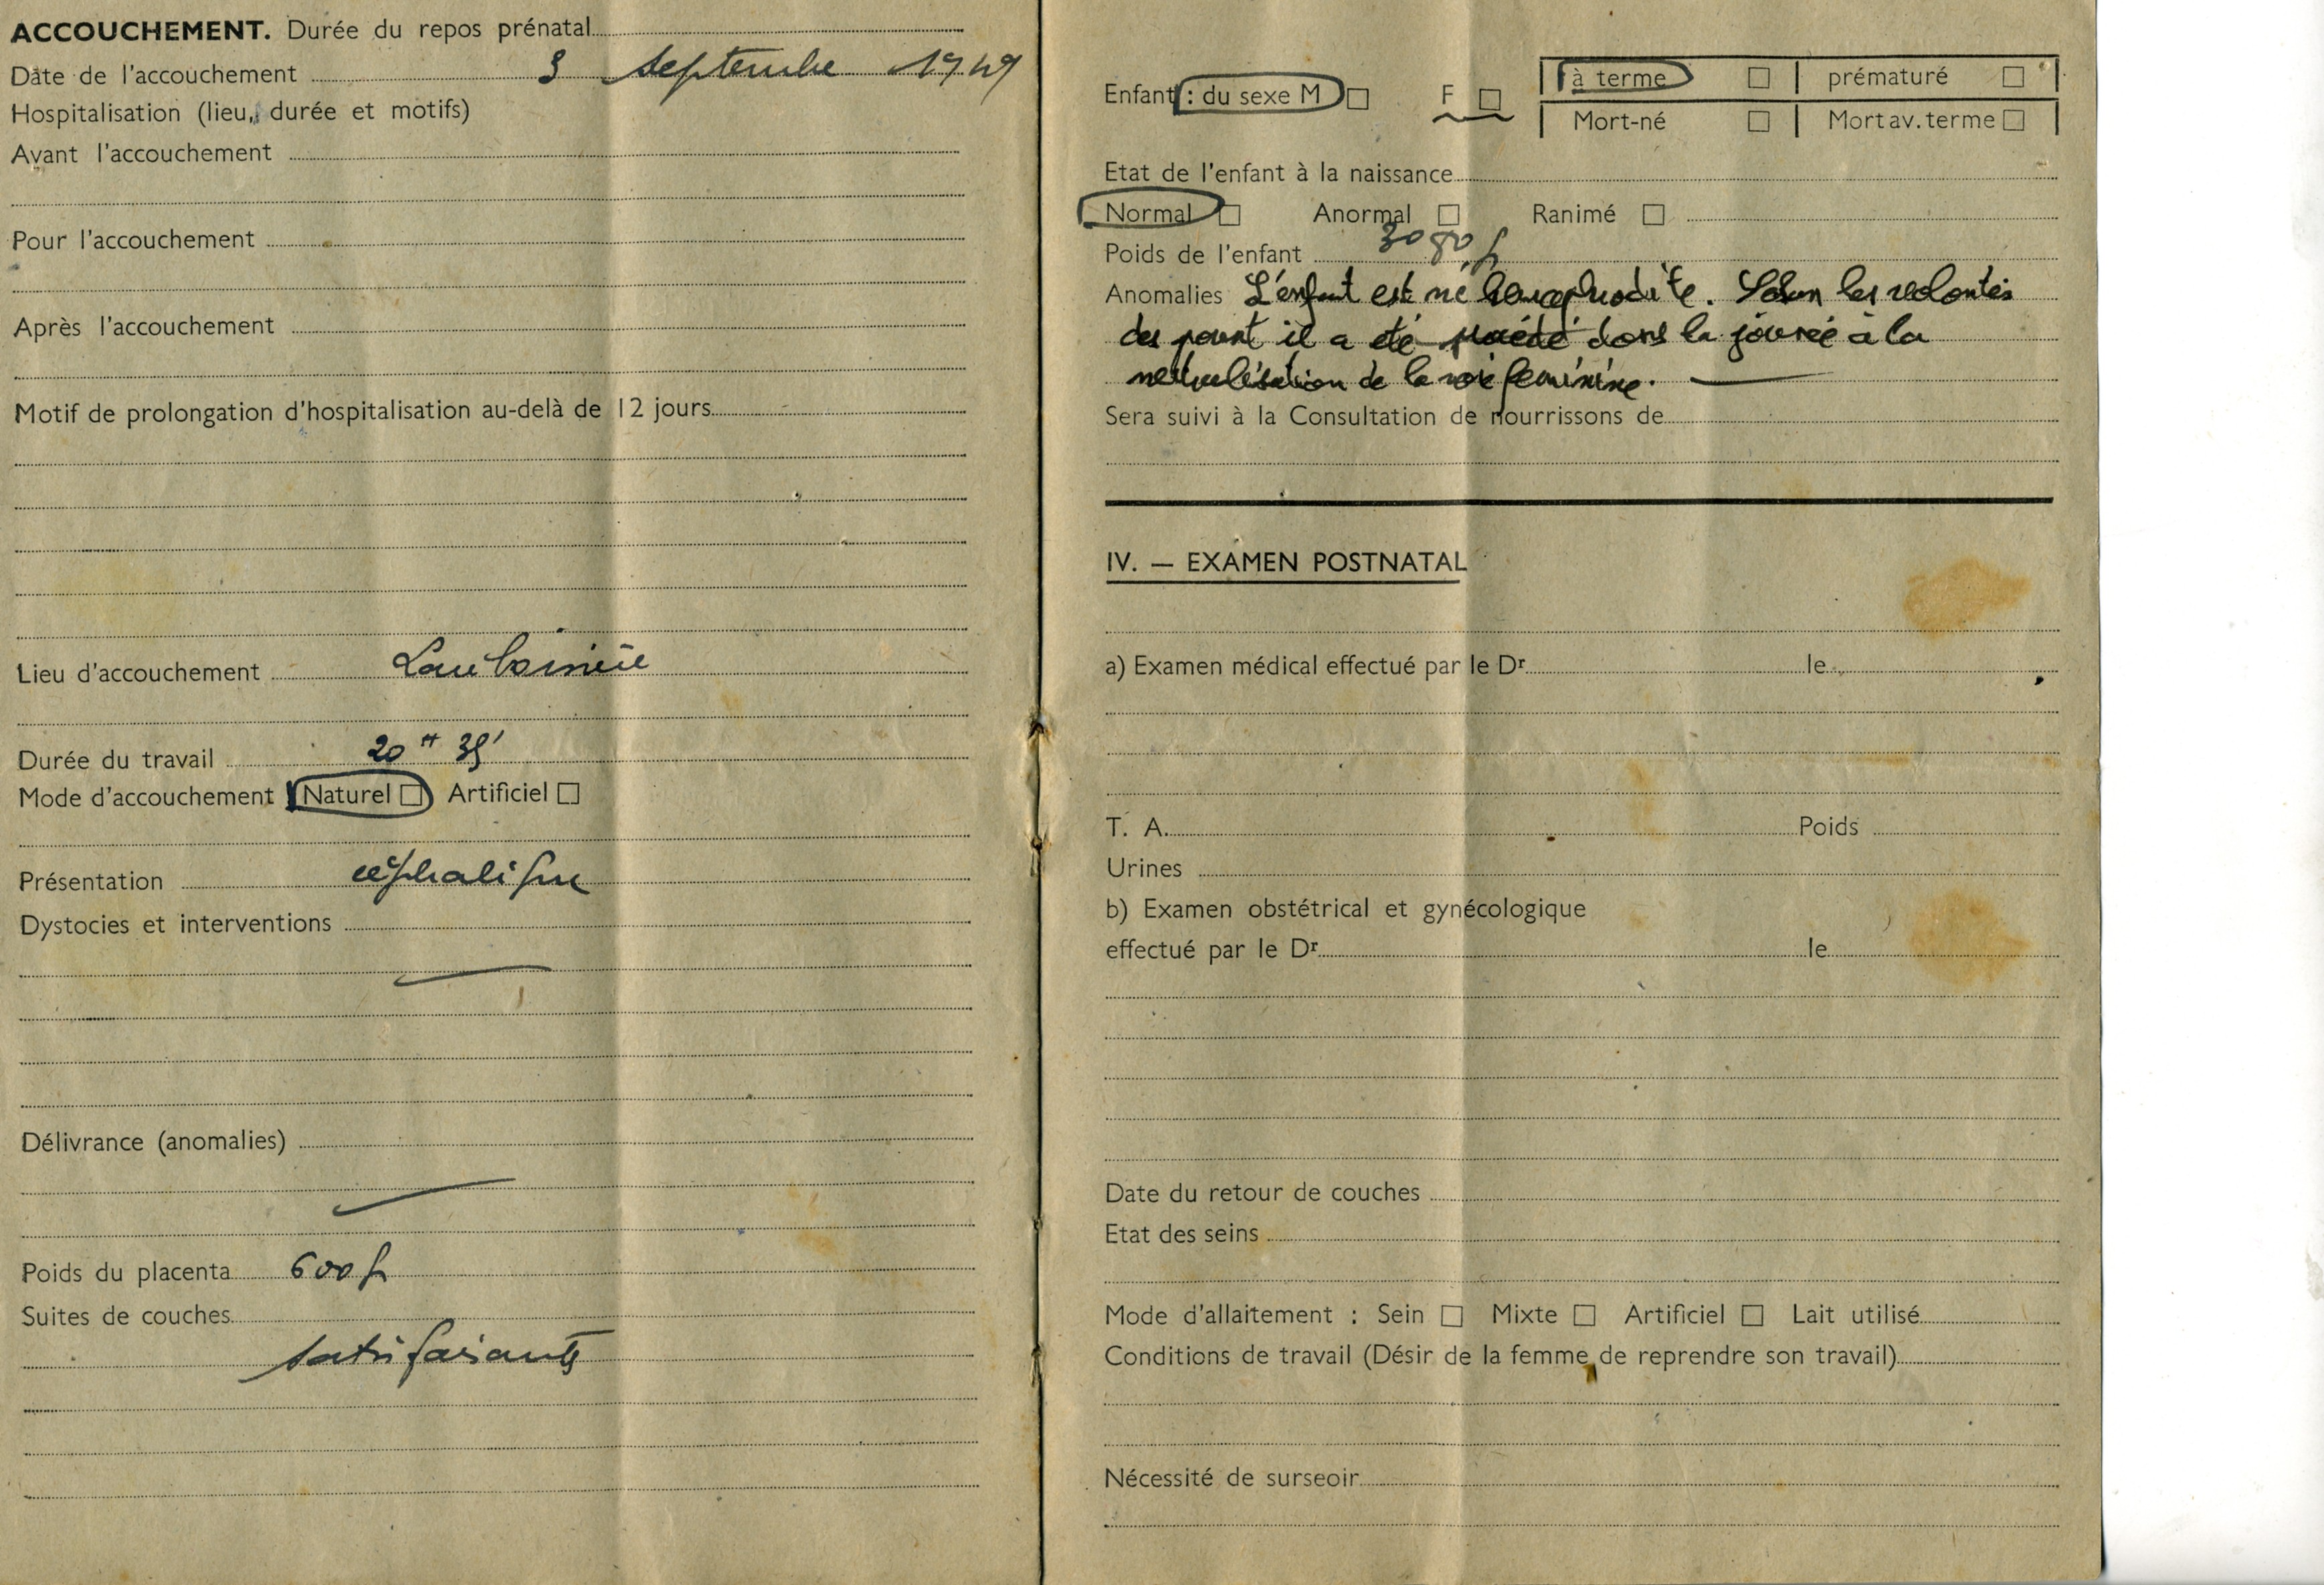 ACCOUCHEMENT. Durée du repos prénatal
Date de l'accouchement 3 Septembre 1949
Hospitalisation (lieu, durée et motifs)
Avant l'accouchement
Pour l'accouchement
Après l'accouchement
Motif de prolongation d'hospitalisation au-delà de 12 jours
Lieu d'accouchement Lariboisière
Durée du travail 20H 35'
Mode d'accouchement Naturel □ Artificiel □
Présentation céphalique
Dystocies et interventions
Délivrance (anomalies)
Poids du placenta 600 g
Suites de couches
satisfaisantes
Enfant : du sexe M □ F □
à terme □ prématuré □
Mort-né □ Mort av. terme □
Etat de l'enfant à la naissance
Normal □ Anormal □ Ranimé □
Poids de l'enfant 3080 g
Anomalies L'enfant est né hermaphrodite. Selon les volontés
des parent il a été procédé dans la journée à la
neutralisation de la voie feminine.
Sera suivi à la Consultation de nourrissons de
IV. — EXAMEN POSTNATAL
a) Examen médical effectué par le Dr le
T. A. Poids
Urines
b) Examen obstétrical et gynécologique
effectué par le Dr le
Date du retour de couches
Etat des seins
Mode d'allaitement : Sein □ Mixte □ Artificiel □ Lait utilisé
Conditions de travail (Désir de la femme de reprendre son travail)
Nécessité de surseoir